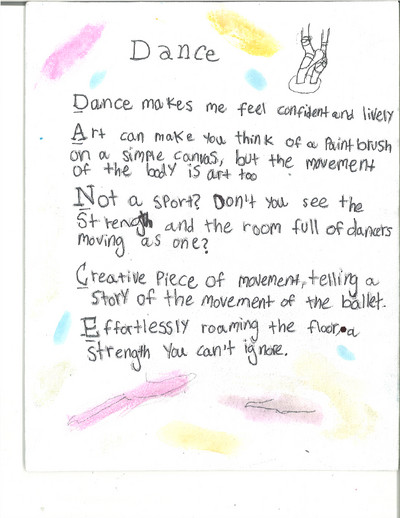 Dance
Dance makes me feel confident and lively
Art can make you think of a Paintbrush
on a simple canvas, but the movement
of the body is art too
Not a sport? Don't you see the
Strength and the room full of dancers
moving as one?
Creative Piece of movement, telling a
story of the movement of the ballet.
Effortlessly roaming the floor. a
strength you can't ignore.